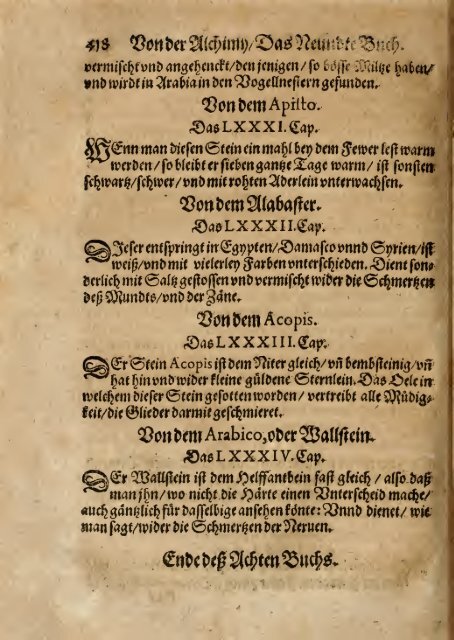 418 Von der Alchimy/Das Neundte Buch.
vermischt vnd angehenckt/den jenigen/so bösse Miltze haben/
vnd wirdt in Arabia in den Vogellnestern gefunden.
Von dem Apisto.
Das LXXXI. Cap.
WEnn man diesen Stein ein mahl bey dem Fewer lest warm
werden/so bleibt er sieben gantze Tage warm/ist sonsten
schwartz/schwer/vnd mit rohten Aderlein vnterwachsen.
Von dem Alabaster.
Das LXXXII. Cap.
DIeser entspringt in Egypten/Damasco vnnd Syrien/ist
weiß/vnd mit vielerley Farben vnterschieden. Dient son-
derlich mit Saltz gestossen vnd vermischt wider die Schmertzen
deß Mundts/vnd der Zäne.
Von dem Acopis.
Das LXXXIII. Cap.
DEr Stein Acopis ist dem Niter gleich/vñ bembsteinig/vñ
hat hin vnd wider kleine güldene Sternlein. Das Oele in
welchem dieser Stein gesotten worden/vertreibt alle Müdig-
keit/die Glieder darmit geschmieret.
Von dem Arabico, oder Wallstein.
Das LXXXIV. Cap.
DEr Wallstein ist dem Helffantbein fast gleich/also daß
man jhn/wo nicht die Härte einen Vnterscheid mache/
auch gäntzlich für dasselbige ansehen könte: Vnnd dienet/wie
man sagt/wider die Schmertzen der Neruen.
Ende deß Achten Buchs.